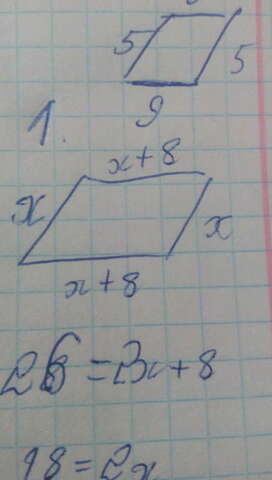 5 5
9
1.
x+8
x x
x+8
= 2x+8
18 = 2x